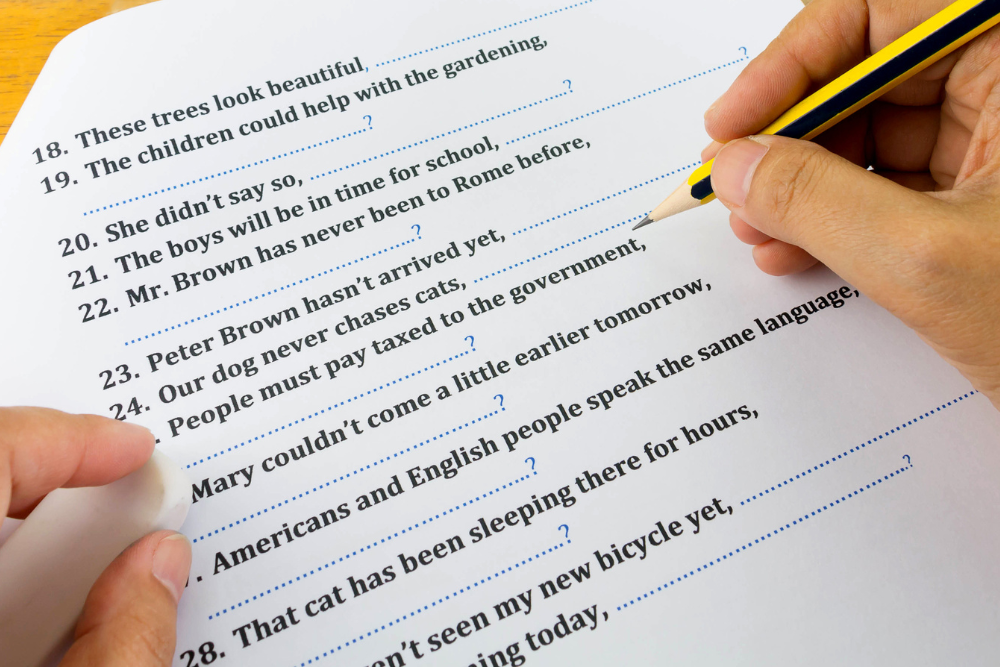 18. These trees look beautiful, ....................
19. The children could help with the gardening,
....................?
20. She didn't say so, ....................?
21. The boys will be in time for school, ....................?
22. Mr. Brown has never been to Rome before,
....................?
23. Peter Brown hasn't arrived yet, ....................
24. Our dog never chases cats, ....................
. People must pay taxed to the government,
....................?
Mary couldn't come a little earlier tomorrow,
....................?
. Americans and English people speak the same language,
....................?
28. That cat has been sleeping there for hours,
....................?
seen my new bicycle yet, ....................
today, ....................?